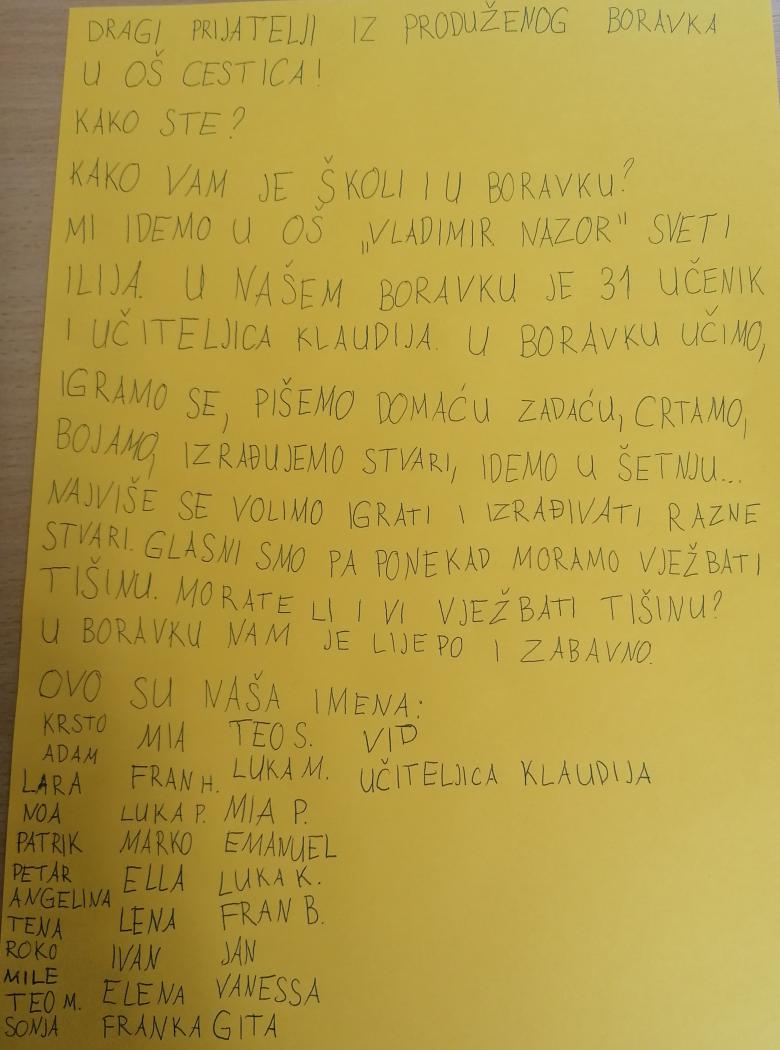 DRAGI PRIJATELJI IZ PRODUŽENOG BORAVKA
U OŠ CESTICA!
KAKO STE?
KAKO VAM JE ŠKOLI I U BORAVKU?
MI IDEMO U OŠ „VLADIMIR NAZOR" SVETI
ILIJA. U NAŠEM BORAVKU JE 31 UČENIK
I UČITELJICA KLAUDIJA. U BORAVKU UČIMO,
IGRAMO SE, PIŠEMO DOMAĆU ZADAĆU, CRTAMO,
BOJAMO, IZRAĐUJEMO STVARI, IDEMO U ŠETNJU...
NAJVIŠE SE VOLIMO IGRATI I IZRAĐIVATI RAZNE
STVARI. GLASNI SMO PA PONEKAD MORAMO VJEŽBATI
TIŠINU. MORATE LI I VI VJEŽBATI TIŠINU?
U BORAVKU NAM JE LIJEPO I ZABAVNO.
OVO SU NAŠA IMENA:
KRSTO MIA TEO S. VID
ADAM
LARA FRAN H. LUKA M. UČITELJICA KLAUDIJA
NOA LUKA P. MIA P.
PATRIK MARKO EMANUEL
PETAR ELLA LUKA K.
ANGELINA
TENA LENA FRAN B.
ROKO IVAN JAN
MILE
TEO M. ELENA VANESSA
SONJA FRANKA GITA